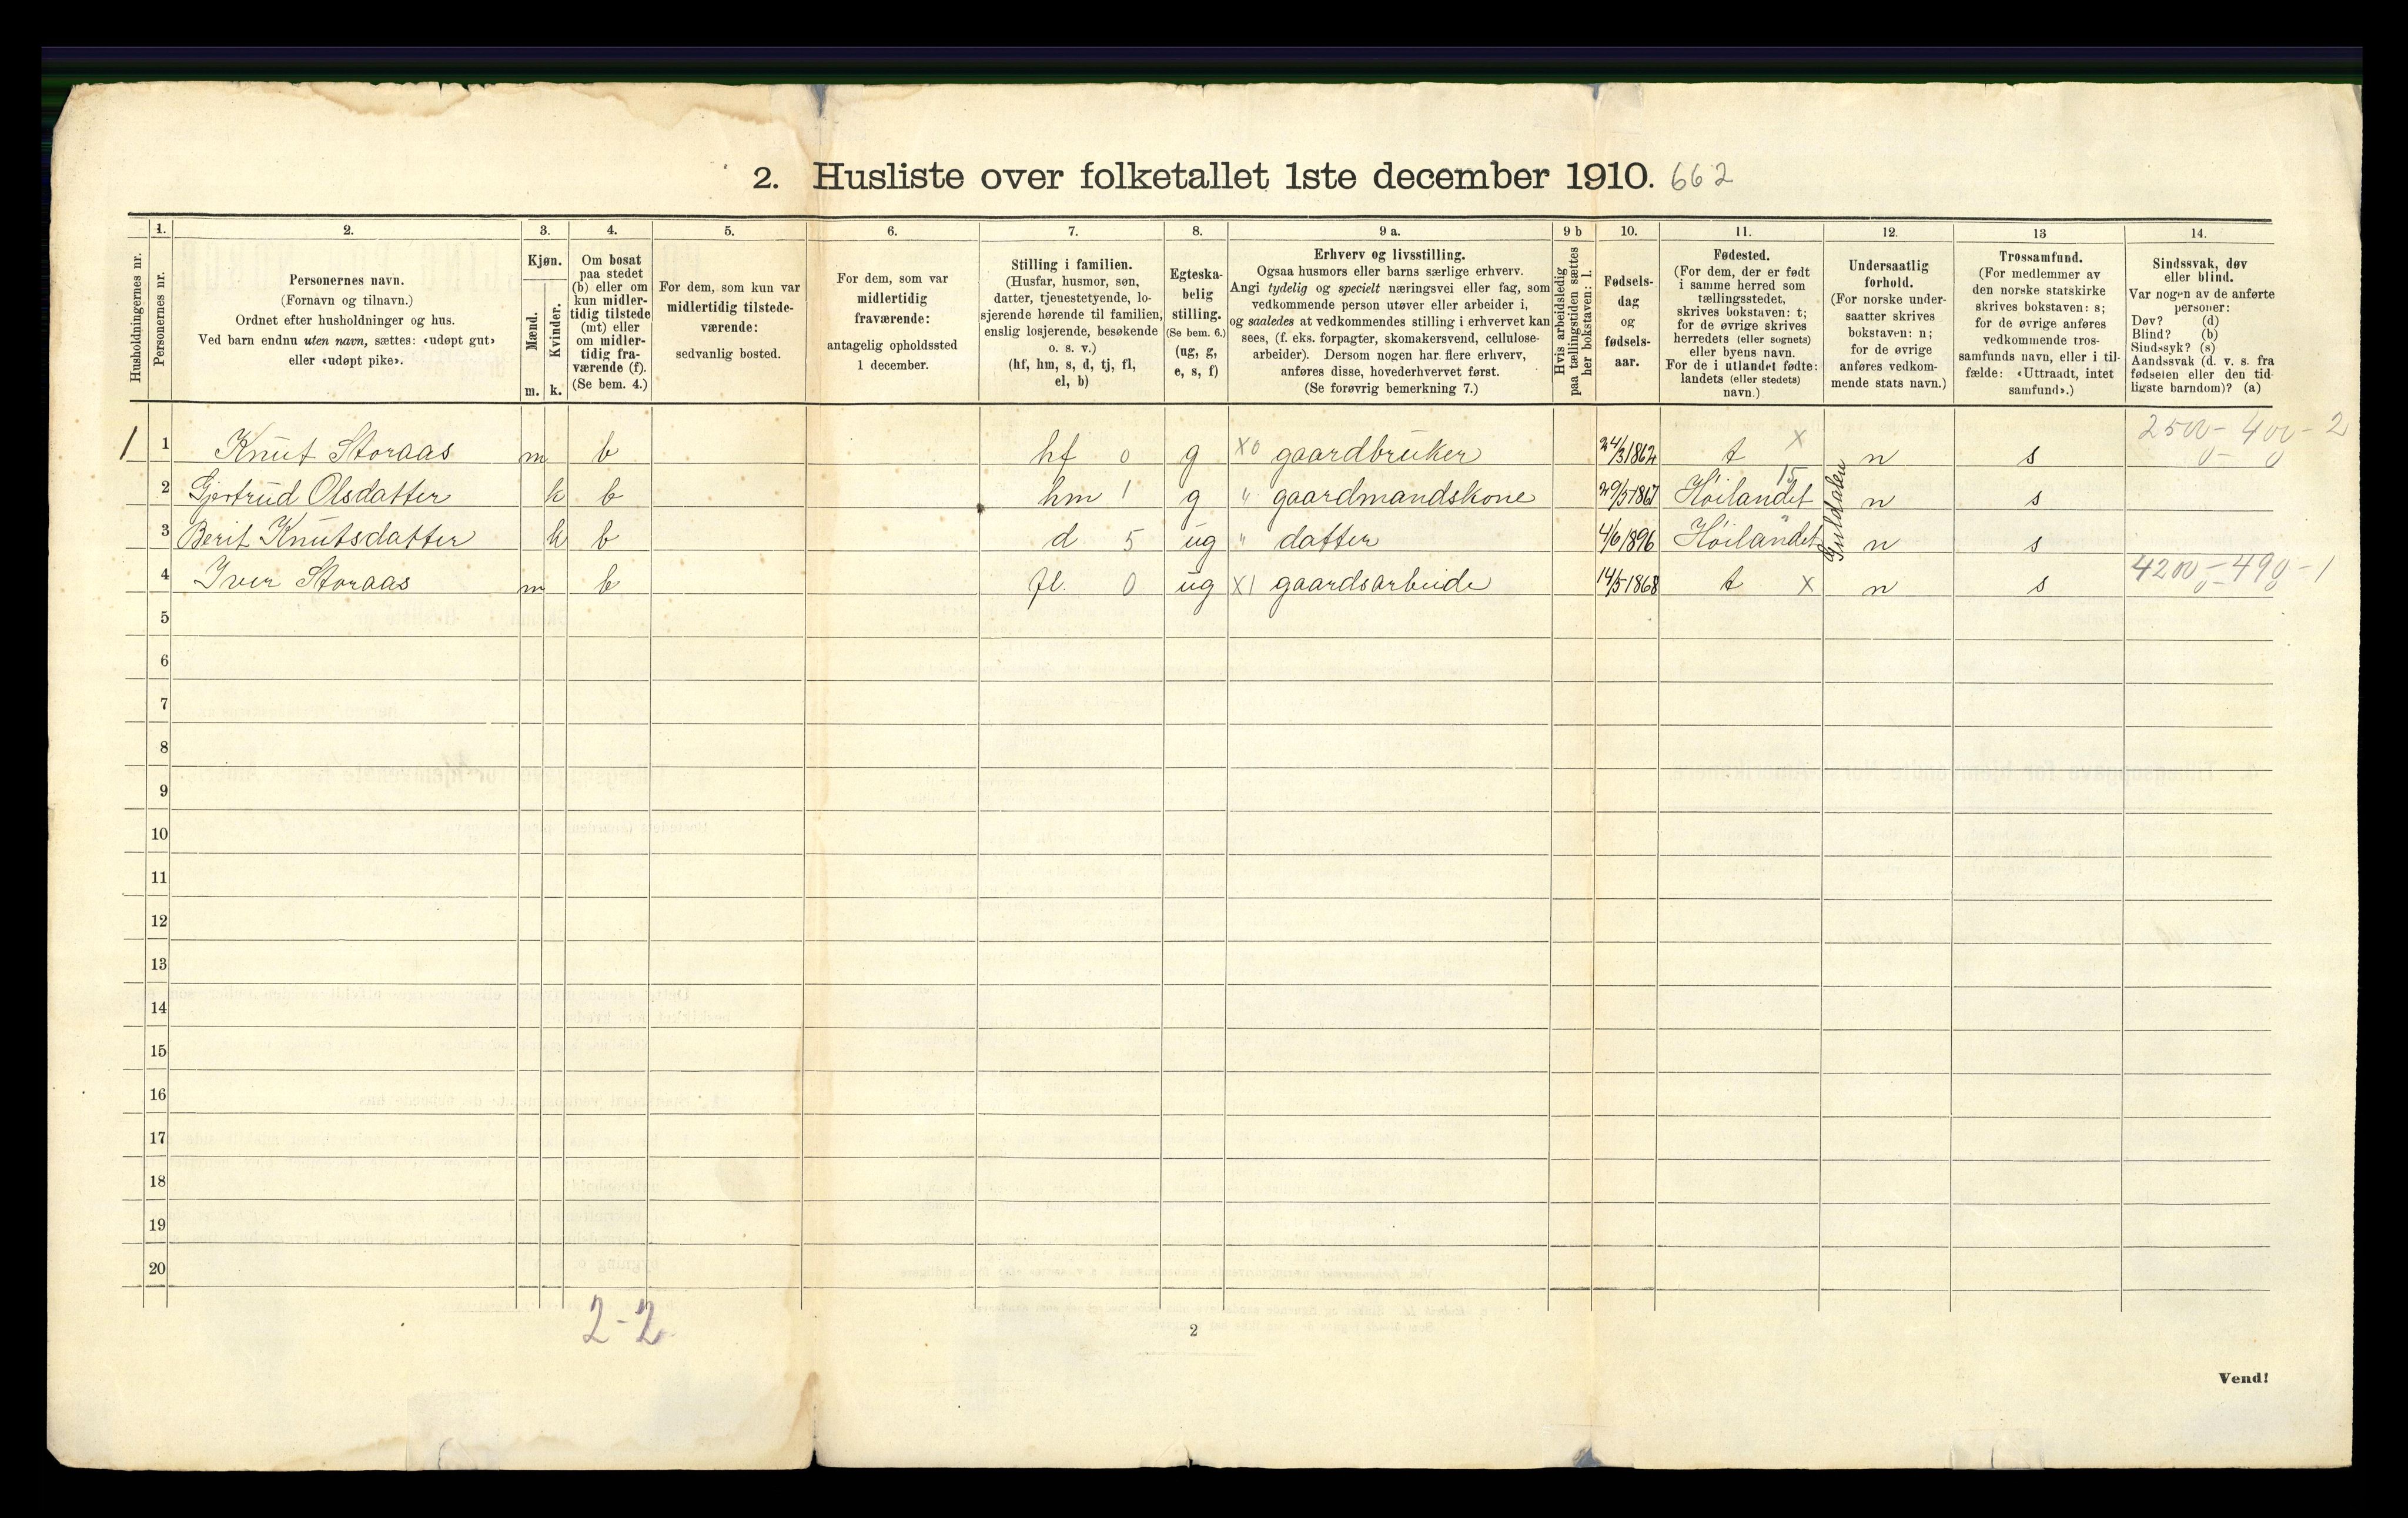 2. Husliste over folketallet 1ste december 1910. 662
Husholdningernes nr.
1.
Personernes nr.
2.
Personernes navn.
(Fornavn og tilnavn.)
Ordnet efter husholdninger og hus.
Ved barn endnu uten navn, sættes: «udøpt gut»
eller «udøpt pike».
3.
Kjøn.
Mænd.
Kvinder.
m. k.
4.
Om bosat
paa stedet
(b) eller om
kun midler-
tidig tilstede
(mt) eller
om midler-
tidig fra-
værende (f).
(Se bem. 4.)
5.
For dem, som kun var
midlertidig tilstede-
værende:
sedvanlig bosted.
6.
For dem, som var
midlertidig
fraværende:
antagelig opholdssted
1 december.
7.
Stilling i familien.
(Husfar, husmor, søn,
datter, tjenestetyende, lo-
sjerende hørende til familien,
enslig losjerende, besøkende
o. s. v.)
(hf, hm, s, d, tj, fl,
el, b)
8.
Egteska-
belig
stilling.
(Se bem. 6.)
(ug, g,
e, s, f)
9 a.
Erhverv og livsstilling.
Ogsaa husmors eller barns særlige erhverv.
Angi tydelig og specielt næringsvei eller fag, som
vedkommende person utøver eller arbeider i,
og saaledes at vedkommendes stilling i erhvervet kan
sees, (f. eks. forpagter, skomakersvend, cellulose-
arbeider). Dersom nogen har flere erhverv,
anføres disse, hovederhvervet først.
(Se forøvrig bemerkning 7.)
9 b
Hvis arbeidsledig
paa tællingstiden sættes
her bokstaven: l.
10.
Fødsels-
dag
og
fødsels-
aar.
11.
Fødested.
(For dem, der er født
i samme herred som
tællingsstedet,
skrives bokstaven: t;
for de øvrige skrives
herredets (eller sognets)
eller byens navn.
For de i utlandet fødte:
landets (eller stedets)
navn.)
12.
Undersaatlig
forhold.
(For norske under-
saatter skrives
bokstaven: n;
for de øvrige
anføres vedkom-
mende stats navn.)
13
Trossamfund.
(For medlemmer av
den norske statskirke
skrives bokstaven: s;
for de øvrige anføres
vedkommende tros-
samfunds navn, eller i til-
fælde: «Uttraadt, intet
samfund».)
14.
Sindssvak, døv
eller blind.
Var nogen av de anførte
personer:
Døv? (d)
Blind? (b)
Sindssyk? (s)
Aandssvak (d. v. s. fra
fødselen eller den tid-
ligste barndom)? (a)
1 1 Knut Storaas m b hf 0 g X0 gaardbruker 24/3 1862 t X n s 2500 - 400 - 2
0 - 0
2 Gjertrud Olsdatter k b hm 1 g " gaardmandskone 29/5 1867 Høilandet 15 Guldalen n s
3 Berit Knutsdatter k b d 5 ug " datter 4/6 1896 Høilandet " n s
4 Iver Storaas m b fl. 0 ug X1 gaardsarbeide 14/5 1868 t X n s 4200 - 490 - 1
0 - 0
5
6
7
8
9
10
11
12
13
14
15
16
17
18
19
20
2-2
2
Vend!